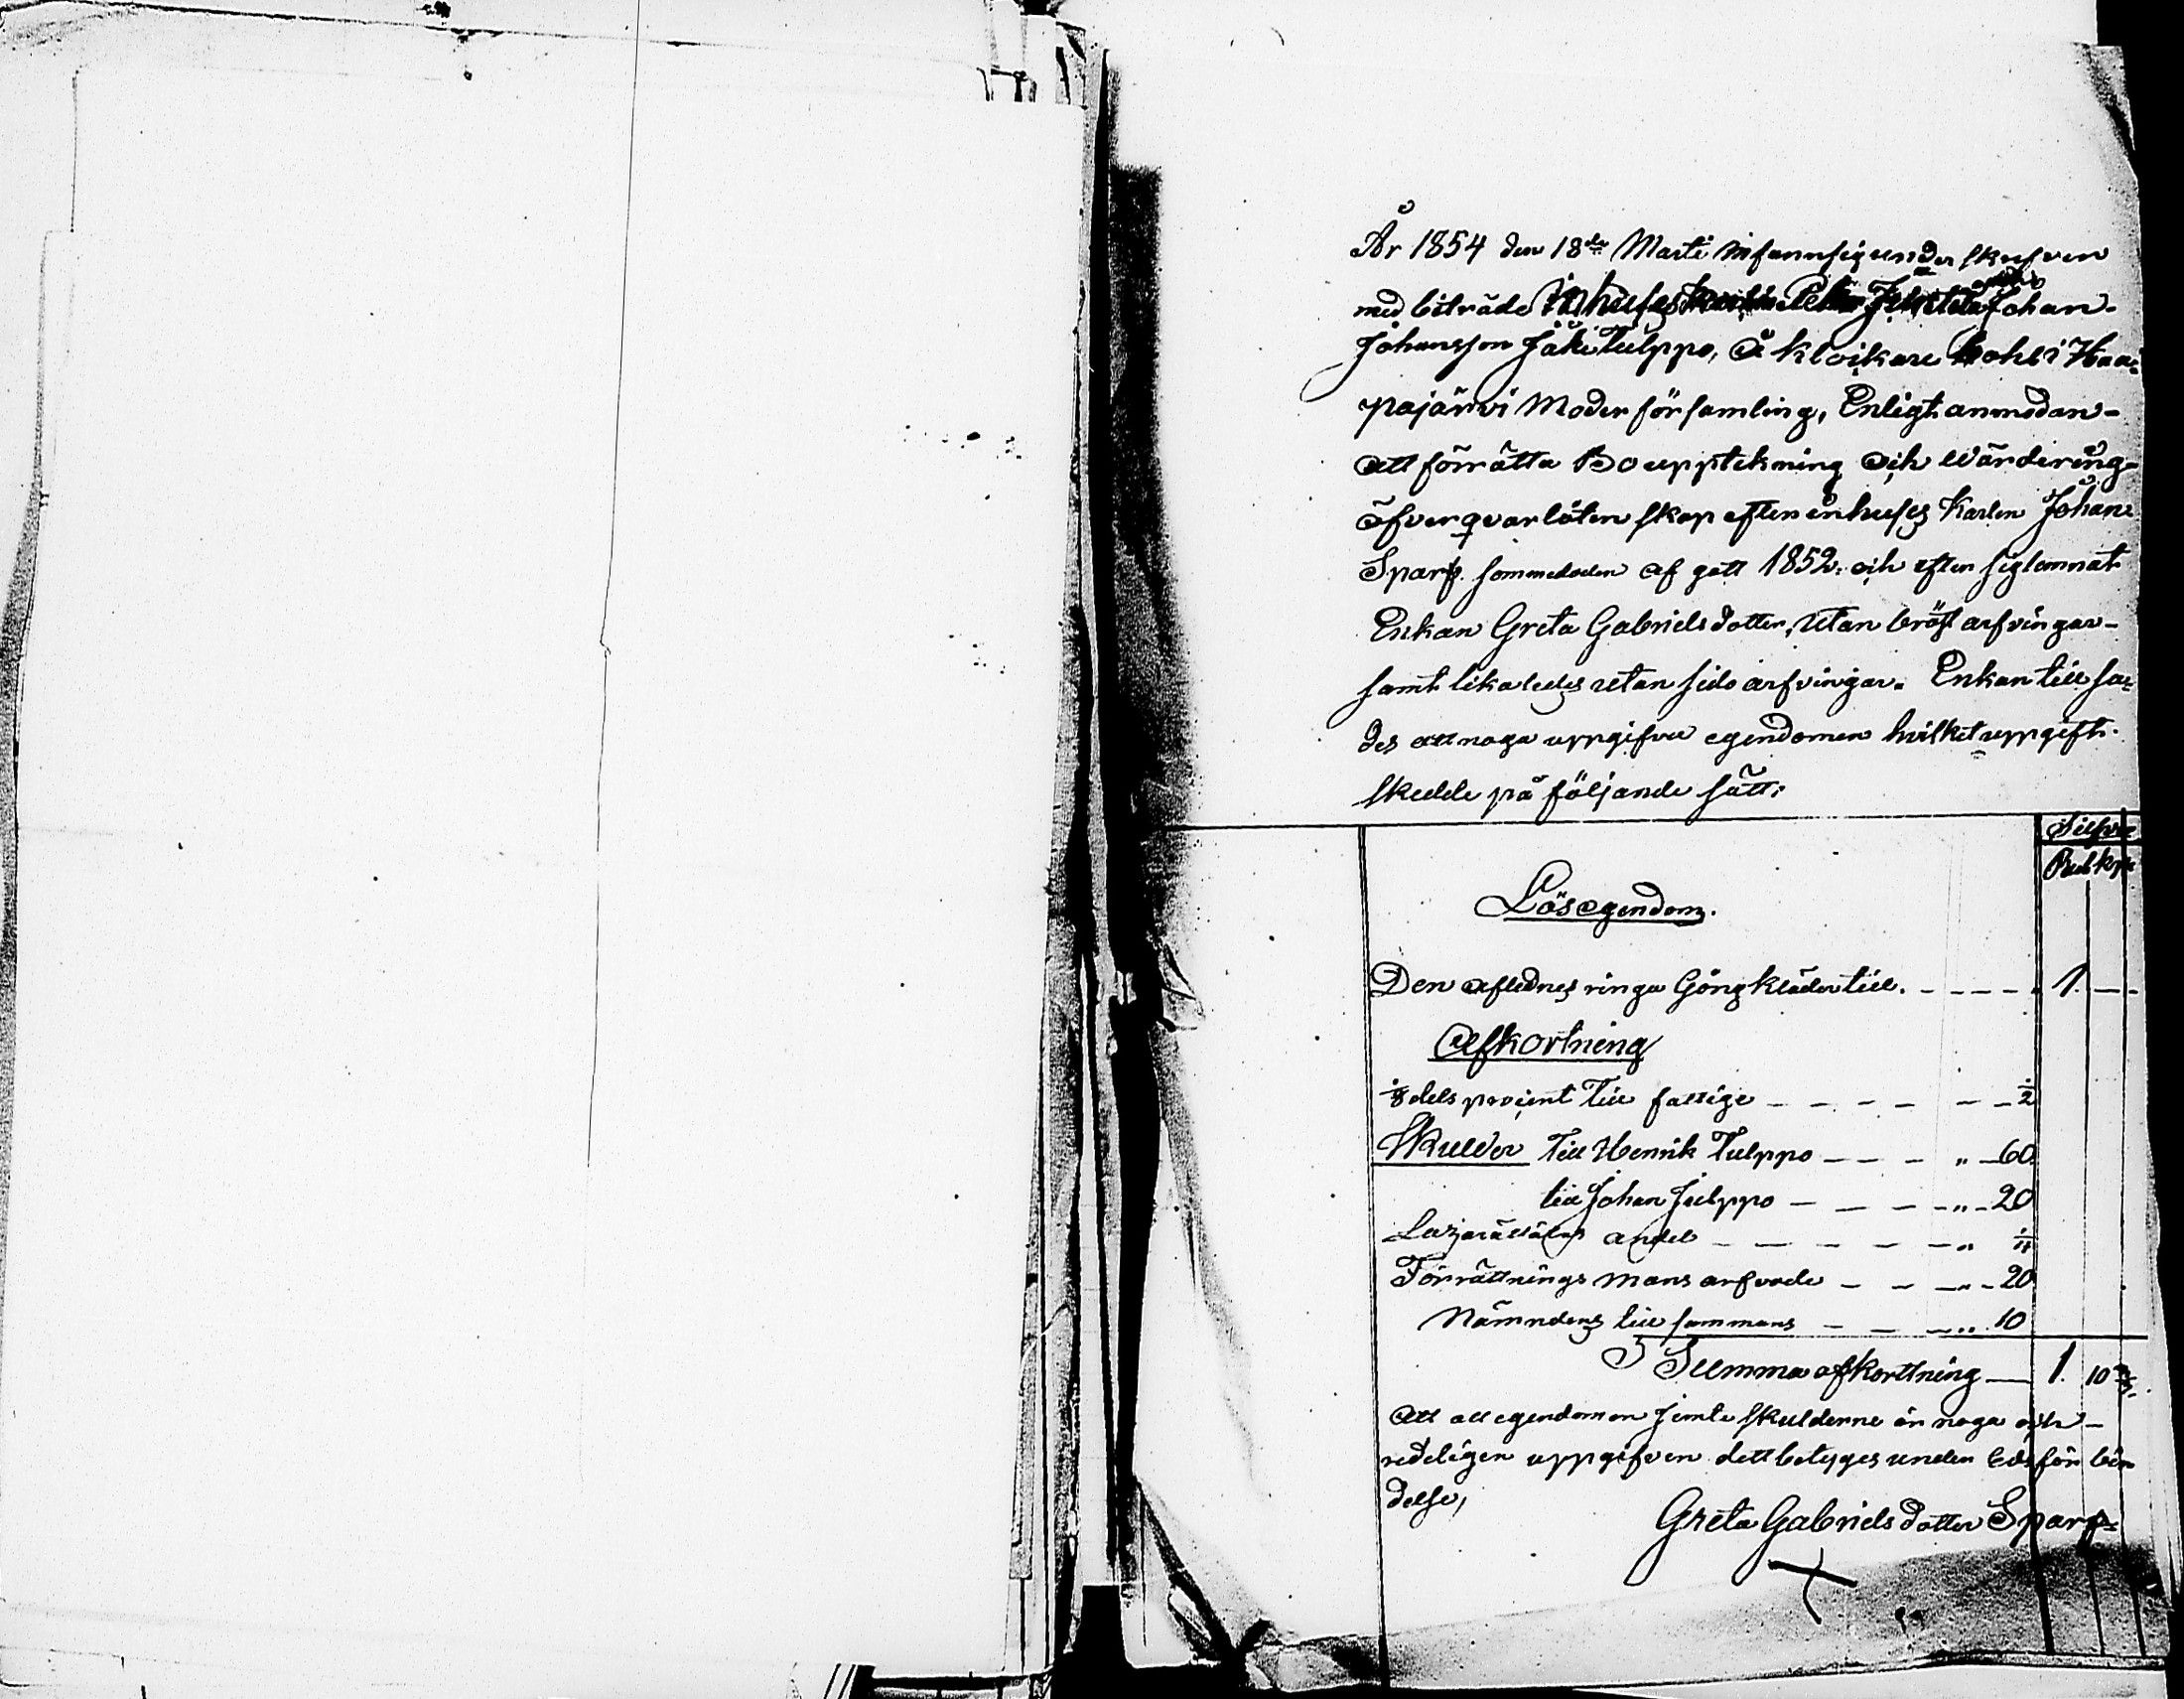 År 1854 den 18de Marti infann sig underskrefven
med biträde Johan
Johansson Jäke Tulppo, å kloikare bohl i Haa=
pajärvi Moderförsamling, Enligt anmodan-
att förrätta Bouppteckning och wärdering-
öfver qvarlåtenskap efter inhuses Karlen Johan
Sparf. som medoden afgått 1852. och efter sig lemnat
Enkan Greta Gabrielsdotter, utan bröst arfvingar-
samt likaledes utan sido arfvingar. Enkan till sa=
des att noga uppgifva egendomen hvilket uppgift.
skedde på följande sätt:
Silfver
Rub kp
Lösegendom.
Den aflednes ringa Gångkläder till. - - - - 1. - -
Afkortning
1/8 dels procent Till fattige - - - - - - 1/2
Skulder Till Henrik Tulppo - - - " - 60
till Johan Julppo - - - - " - 20
andel - - - - - " 1/4
Förrättnings Mans arfvode - - - " - 20
Nämndens till sammans - - - " 10
Summa afkorttning - 1. 10
Att all egendomen jemte skulderne är noga och -
redeligen uppgifven dett betyges under edsför bin
delse,
Greta Gabriels dotter Sparf